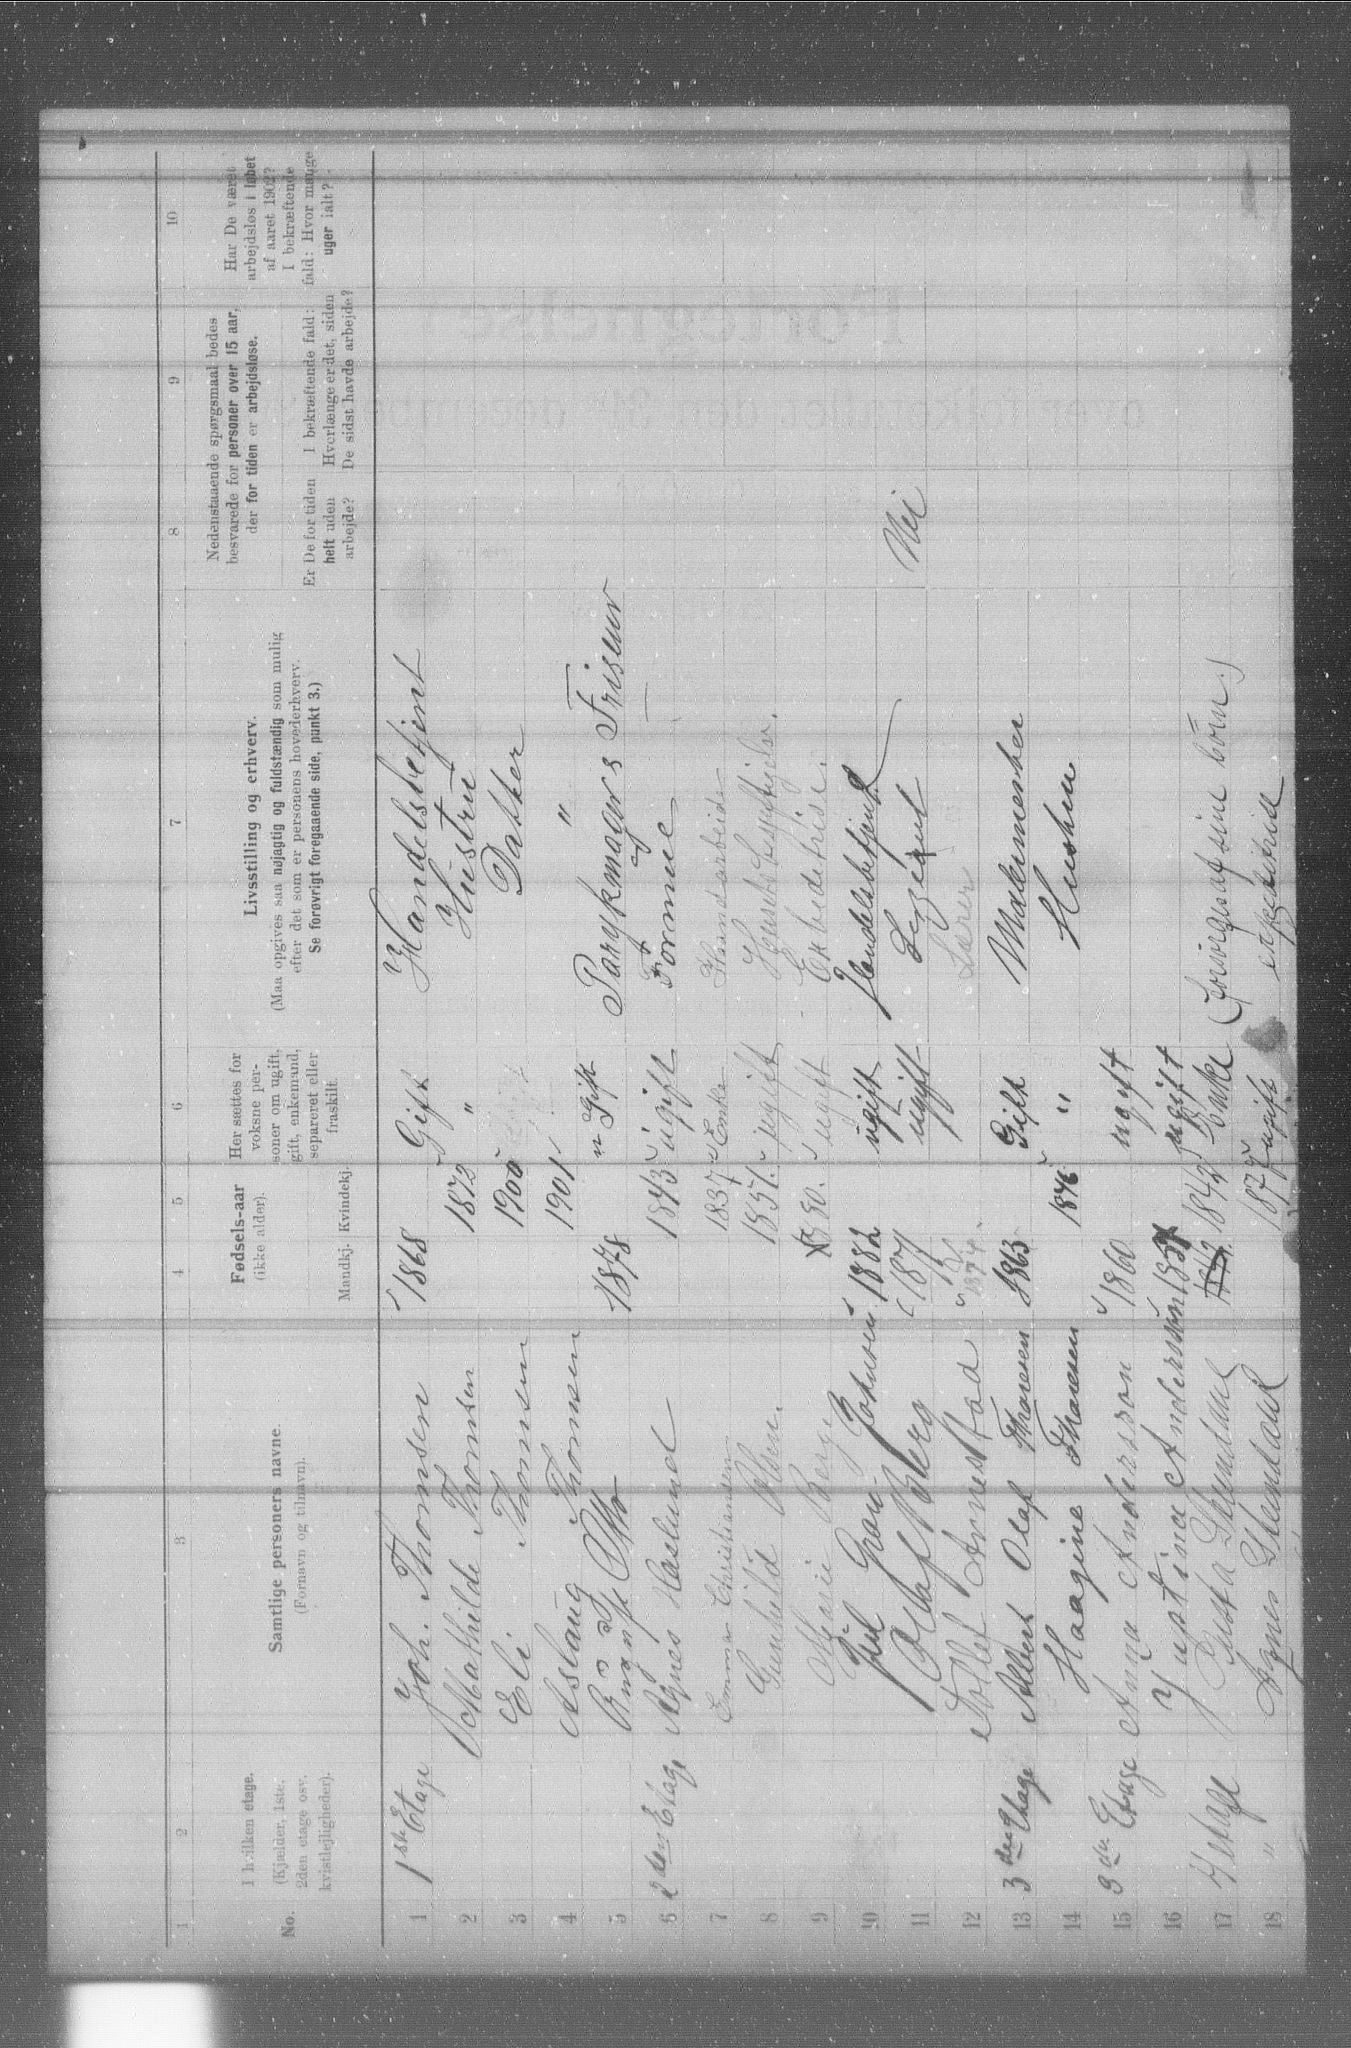 1 2 3 4 5 6 7 8 9 10
No.
I hvilken etage.
(Kjælder, 1ste,
2den etage osv.
kvistlejligheder).
Samtlige personers navne.
(Fornavn og tilnavn).
Fødsels-aar
(ikke alder).
Mandkj. Kvindekj.
Her sættes for
voksne per-
soner om ugift,
gift, enkemand,
separeret eller
fraskilt.
Livsstilling og erhverv.
(Maa opgives saa nøjagtig og fuldstændig som mulig
efter det som er personens hovederhverv.
Se forøvrigt foregaaende side, punkt 3.)
Nedenstaaende spørgsmaal bedes
besvarede for personer over 15 aar,
der for tiden er arbejdsløse.
Er De for tiden
helt uden
arbejde?
I bekræftende fald:
Hvorlænge er det, siden
De sidst havde arbejde?
Har De været
arbejdsløs i løbet
af aaret 1902?
I bekræftende
fald: Hvor mange
uger ialt?
1 1ste Etage Joh. Thomsen 1868 Gift Handelsbetjent
2 Mathilde Thomsen 1873 " Hustru
3 Eli Thomsen 1900 Datter
4 Aslaug Thomsen 1901 "
5 Otto 1878 Gift Parykmager & Friseur
6 2den Etage Agnes Haslund 1843 ugift Formue
7 Emma Christiansen 1837 Enke Haandarbeide
8 Gunhild Olsen. 1857. ugift
9 Marie Berg 1880. ugift
10 Juel Grøn Johnsen 1882 ugift Handelsbetjent
11 Olaf Berg 187 ugift Nei
12 Arnestad 1874. Lærer
13 3die Etage Albert Olaf Thoresen 1863 Gift Malermester
14 Haagine Thoresen 1876 " Hustru
15 3die Etage Anna Andersson 1860 ugift
16 Justina Andersson 1857 ugift
17 4 etage 1842 Enke (forsørges af sine børn.)
18 " Agnes 1877 ugift